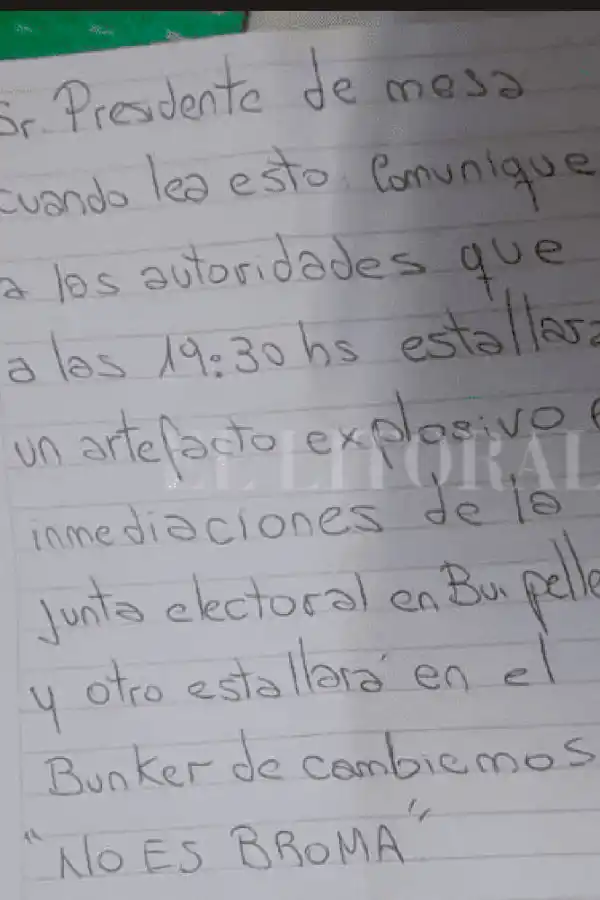 Sr. Presidente de mesa
cuando lea esto. Comunique
a las autoridades que
a las 19:30 hs estallara
un artefacto explosivo
inmediaciones de la
Junta electoral en Bv. pelle
y otro estallará en el
Bunker de cambiemos
"NO ES BROMA"
EL LITORAL